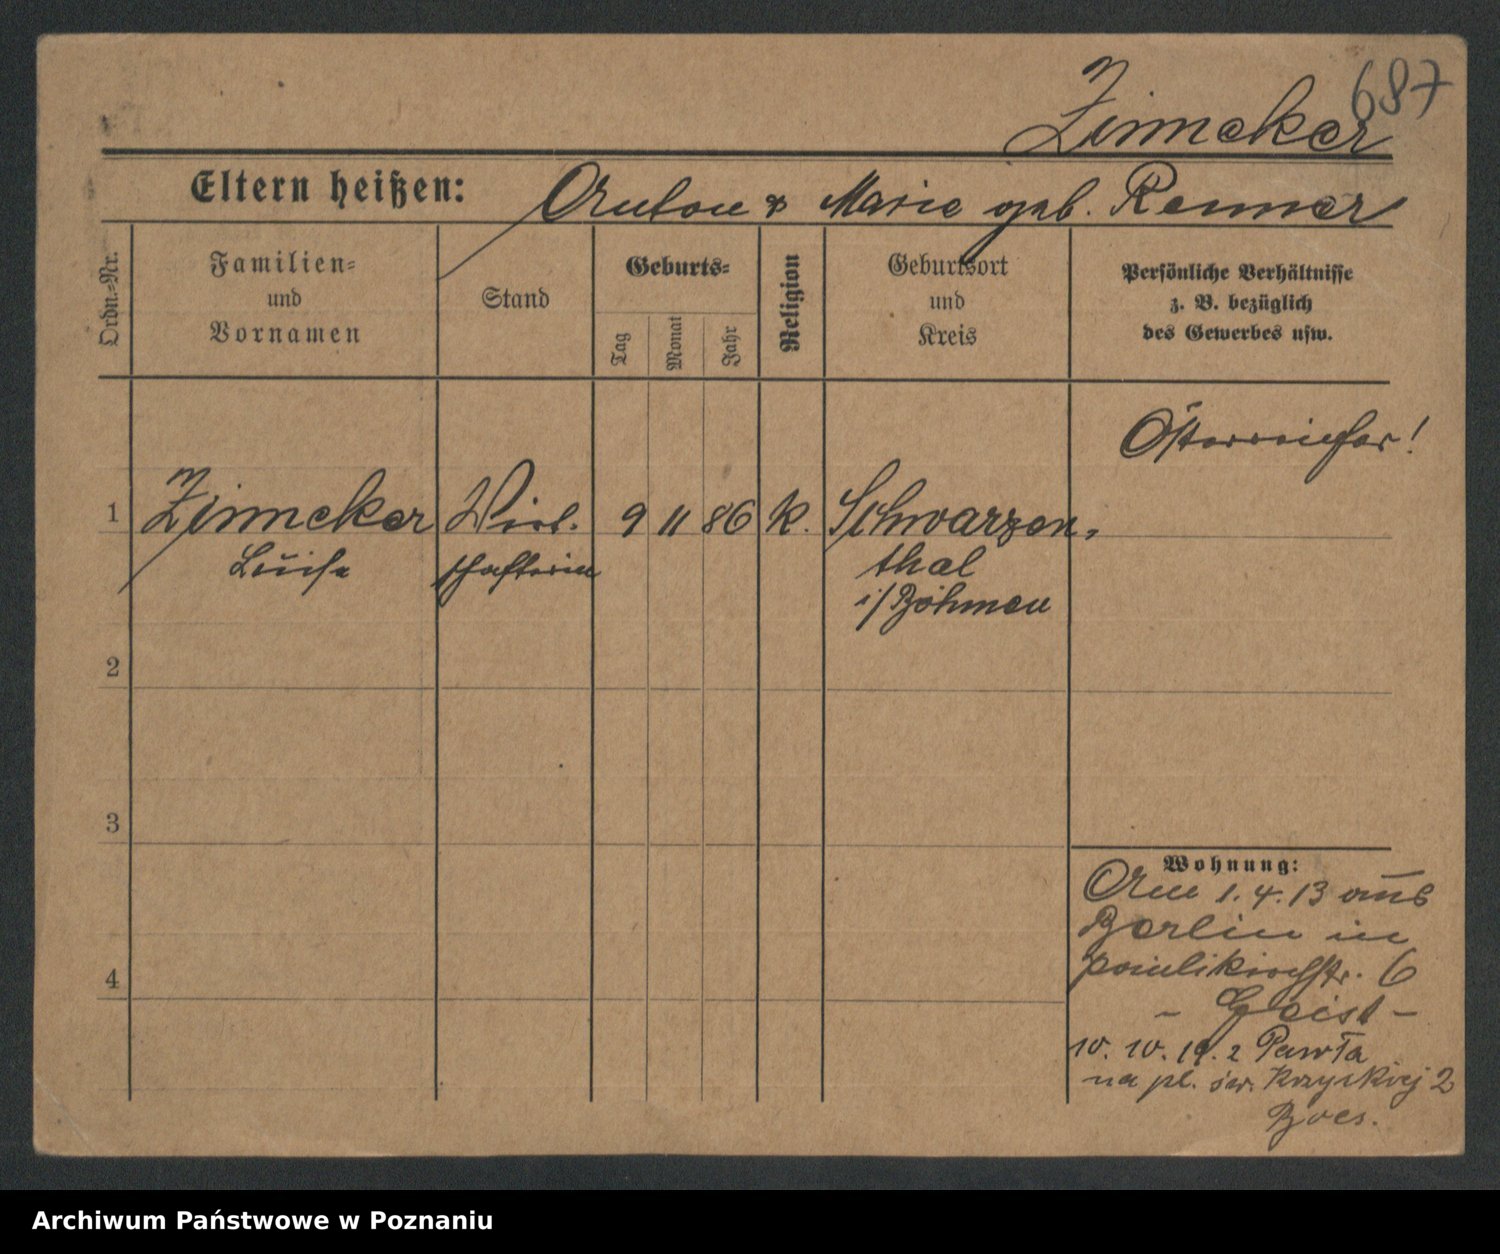 687
Zinneker
Eltern heißen: Anton & Marie geb. Renner
Ordn.-Nr.
Familien-
und
Vornamen
Stand
Geburts-
Tag
Monat
Jahr
Religion
Geburtsort
und
Kreis
Persönliche Verhältnisse
z. B. bezüglich
des Gewerbes usw.
Österreicher!
1 Zinneker Wirt- 9 11 86 k. Schwarzen-
Luise schafterin thal
i/Böhmen
2
3
4
Wohnung:
Am 1.4.13 aus
Berlin in
Paulikirchstr. 6
- Geist -
10. 10. 19. z Pawła
na pl. św. Krzyskiej 2